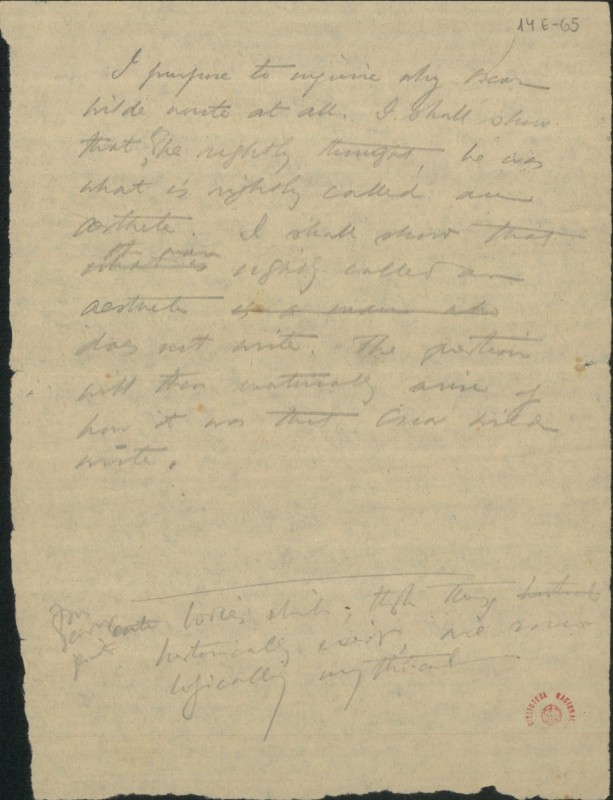 14 E-65
I purpose to inquire why Oscar
Wilde wrote at all. I shall show
that, he rightly thought, he was
what is rightly called an
aesthete. I shall show that
the man
what is rightly called an
aesthete is a man who
does not write. The question
will then naturally arise of
how it was that Oscar Wilde
wrote.
bodies which, though they
historically exist, are socio-
logically mythical
BIBLIOTECA NACIONAL